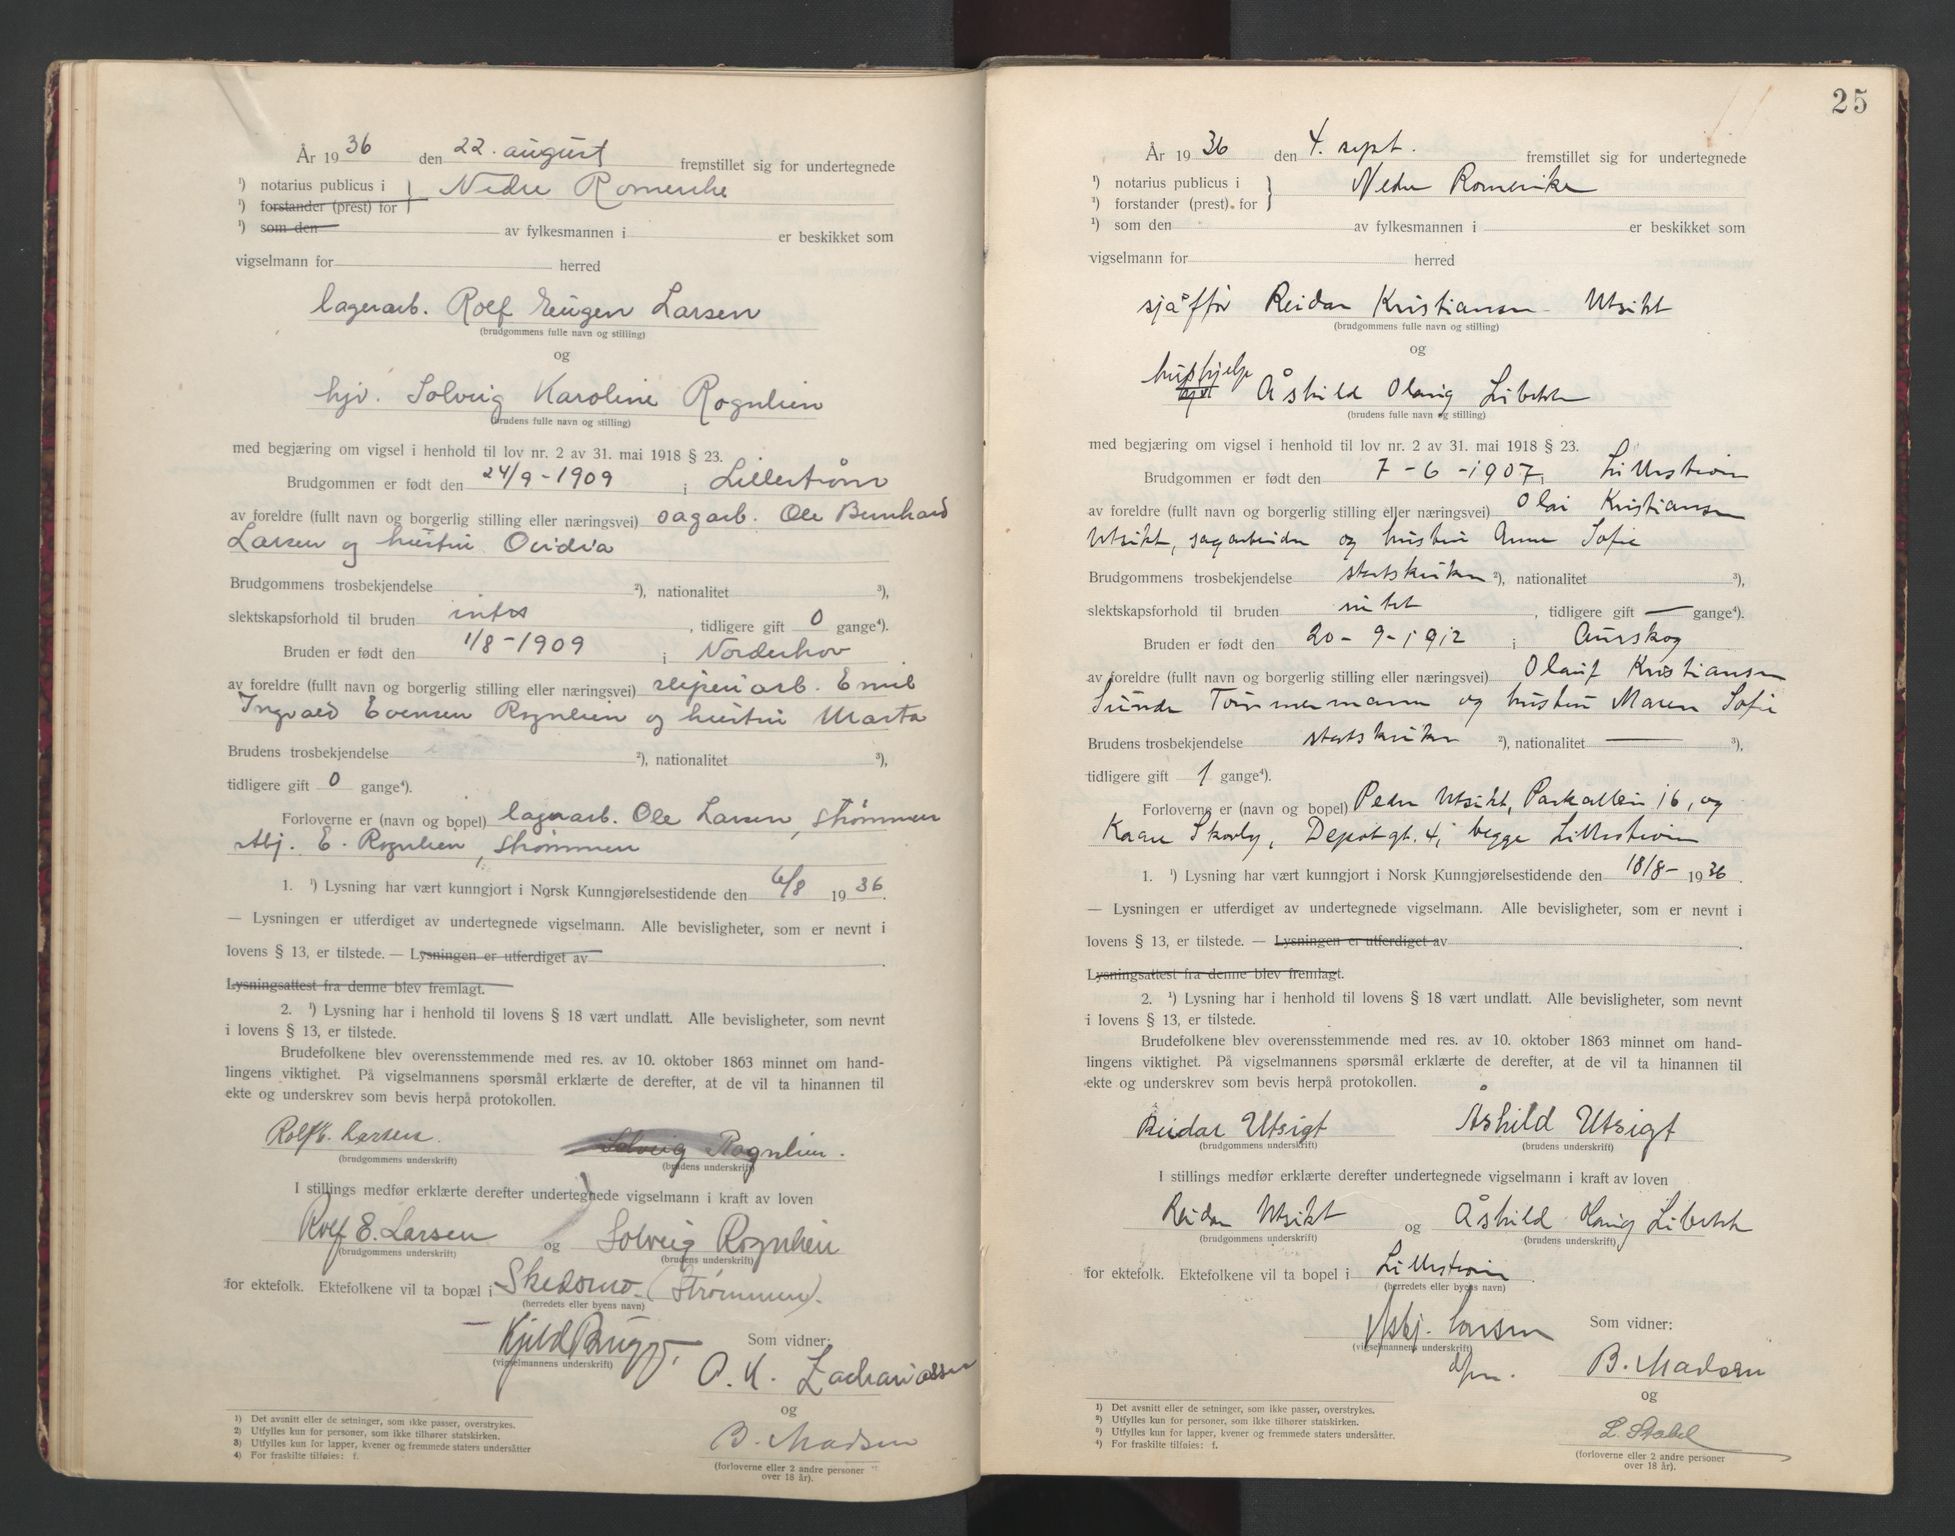 År 19 36 den 22. august fremstillet sig for undertegnede
¹) notarius publicus i } Nedre Romerike
¹) forstander (prest) for
¹) som den av fylkesmannen i er beskikket som
vigselmann for herred
lagerarb. Rolf Eugen Larsen
(brudgommens fulle navn og stilling)
og
hjv. Solveig Karoline Rognlien
(brudens fulle navn og stilling)
med begjæring om vigsel i henhold til lov nr. 2 av 31. mai 1918 § 23.
Brudgommen er født den 24/9-1909 i Lillestrøm
av foreldre (fullt navn og borgerlig stilling eller næringsvei) sagarb. Ole Bernhard
Larsen og hustru Ovidia
Brudgommens trosbekjendelse ²), nationalitet ³),
slektskapsforhold til bruden intet, tidligere gift 0 gange⁴).
Bruden er født den 1/8-1909 i Norderhov
av foreldre (fullt navn og borgerlig stilling eller næringsvei) sliperiarb. Emil
Ingvald Evensen Rognlien og hustru Marta
Brudens trosbekjendelse ²), nationalitet ³),
tidligere gift 0 gange⁴).
Forloverne er (navn og bopel) lagerarb. Ole Larsen, Strømmen
Abj. E. Rognlien, Strømmen
1. ¹) Lysning har vært kunngjort i Norsk Kunngjørelsestidende den 6/8 19 36.
— Lysningen er utferdiget av undertegnede vigselmann. Alle bevisligheter, som er nevnt i
lovens § 13, er tilstede. — Lysningen er utferdiget av
Lysningsattest fra denne blev fremlagt.
2. ¹) Lysning har i henhold til lovens § 18 vært undlatt. Alle bevisligheter, som nevnt
i lovens § 13, er tilstede.
Brudefolkene blev overensstemmende med res. av 10. oktober 1863 minnet om hand-
lingens viktighet. På vigselmannens spørsmål erklærte de derefter, at de vil ta hinannen til
ekte og underskrev som bevis herpå protokollen.
Rolf E. Larsen. Solveig Rognlien.
(brudgommens underskrift) (brudens underskrift)
I stillings medfør erklærte derefter undertegnede vigselmann i kraft av loven
Rolf E. Larsen og Solveig Rognlien
(brudgommens underskrift) (brudens underskrift)
for ektefolk. Ektefolkene vil ta bopæl i Skedsmo (Strømmen).
(herredets eller byens navn)
Kjeld Brugg. Som vidner:
(vigselmannens underskrift)
O. K. Zachariassen
og
B. Madsen
(forloverne eller 2 andre personer
over 18 år).
1) Det avsnitt eller de setninger, som ikke passer, overstrykes.
2) Utfylles kun for personer, som ikke tilhører statskirken.
3) Utfylles kun for lapper, kvener og fremmede staters undersåtter
4) For fraskilte tilføies: f.
25
År 19 36 den 4. sept. fremstillet sig for undertegnede
¹) notarius publicus i } Nedre Romerike
¹) forstander (prest) for
¹) som den av fylkesmannen i er beskikket som
vigselmann for herred
sjåffør Reidar Kristiansen Utsikt
(brudgommens fulle navn og stilling)
og
hushjelp
Åshild Olaug Libekk
(brudens fulle navn og stilling)
med begjæring om vigsel i henhold til lov nr. 2 av 31. mai 1918 § 23.
Brudgommen er født den 7-6-1907 i Lillestrøm
av foreldre (fullt navn og borgerlig stilling eller næringsvei) Olai Kristiansen
Utsikt, sagarbeider og hustru Anne Sofie
Brudgommens trosbekjendelse statskirken ²), nationalitet ³),
slektskapsforhold til bruden intet, tidligere gift — gange⁴).
Bruden er født den 20-9-1912 i Aurskog
av foreldre (fullt navn og borgerlig stilling eller næringsvei) Olauf Kristiansen
Sunde Tømmermann og hustru Maren Sofie
Brudens trosbekjendelse statskirken ²), nationalitet — ³),
tidligere gift 1 gange⁴).
Forloverne er (navn og bopel) Peder Utsikt, Parkalleen 16, og
Kaare Skovly, Depotgt. 4, begge Lillestrøm
1. ¹) Lysning har vært kunngjort i Norsk Kunngjørelsestidende den 18/8- 19 36.
— Lysningen er utferdiget av undertegnede vigselmann. Alle bevisligheter, som er nevnt i
lovens § 13, er tilstede. — Lysningen er utferdiget av
Lysningsattest fra denne blev fremlagt.
2. ¹) Lysning har i henhold til lovens § 18 vært undlatt. Alle bevisligheter, som nevnt
i lovens § 13, er tilstede.
Brudefolkene blev overensstemmende med res. av 10. oktober 1863 minnet om hand-
lingens viktighet. På vigselmannens spørsmål erklærte de derefter, at de vil ta hinannen til
ekte og underskrev som bevis herpå protokollen.
Reidar Utsigt Åshild Utsigt
(brudgommens underskrift) (brudens underskrift)
I stillings medfør erklærte derefter undertegnede vigselmann i kraft av loven
Reidar Utsikt og Åshild Olaug Libekk
(brudgommens underskrift) (brudens underskrift)
for ektefolk. Ektefolkene vil ta bopel i Lillestrøm
(herredets eller byens navn)
Asbj. Larsen Som vidner:
(vigselmannens underskrift)
B. Madsen
og
L. Stabel
(forloverne eller 2 andre personer
over 18 år).
1) Det avsnitt eller de setninger, som ikke passer, overstrykes.
2) Utfylles kun for personer, som ikke tilhører statskirken.
3) Utfylles kun for lapper, kvener og fremmede staters undersåtter.
4) For fraskilte tilføies: f.